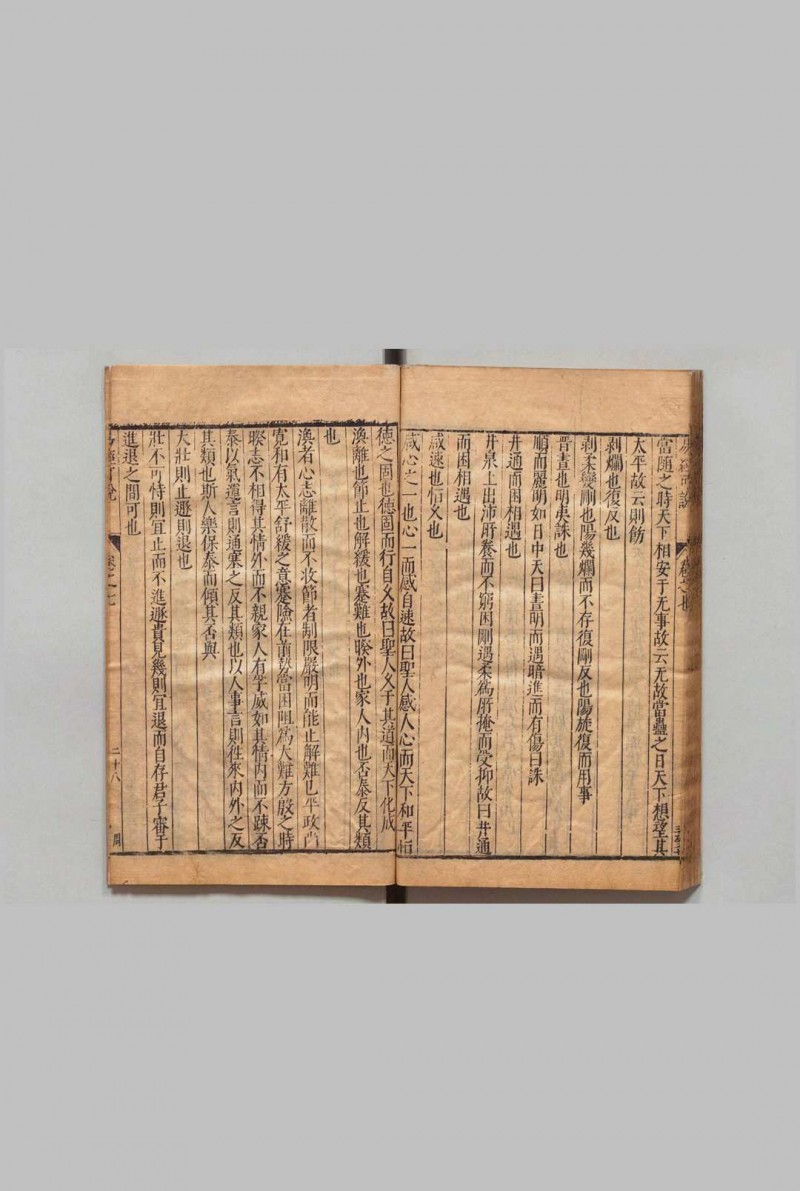 當隨之時天下相安于无事故云无故當蠱之日天下想望其
太平故云則飭
剥爛也復反也
剥柔變剛也陽幾爛而不存復剛反也陽旋復而用事
晉晝也明夷誅也
順而麗明如日中天曰晝明而遇暗進而有傷曰誅
井通而困相遇也
井泉上出沛所養而不窮困剛遇柔爲所掩而受抑故曰井通
而困相遇也
咸速也恒久也
咸心之一也心一而感自速故曰聖人感人心而天下和平恒
德之固也德固而行自久故曰聖人久于其道而天下化成
渙離也節止也解緩也蹇難也睽外也家人内也否泰反其類
也
渙者心志離散而不收節者制限嚴明而能止解難已平政尚
寛和有太平舒緩之意蹇險在前勢當困阻爲大難方殷之時
睽志不相得其情外而不親家人有孚威如其情内而不踈否
泰以氣運言則通塞之反其類也以人事言則徃來内外之反
其類也斯人樂保泰而傾其否與
大壯則止遯則退也
壯不可恃則冝止而不進遯貴見幾則冝退而自存君子審于
進退之間可也
卷之七
二十八